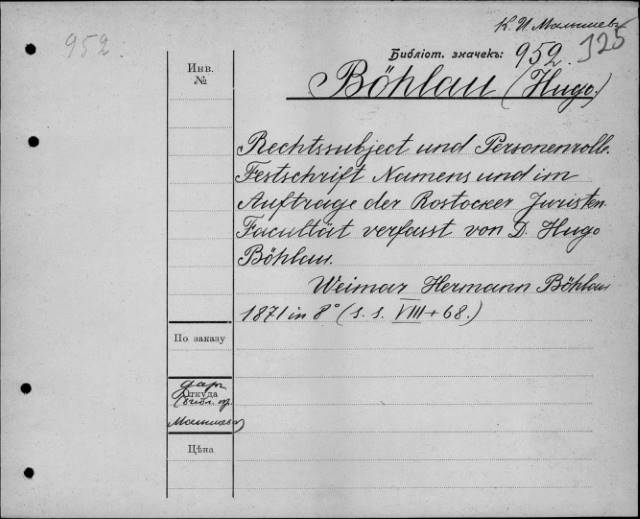 К. И Малышевъ
952.
Библіот. значекъ: 952. 125
Инв.
№
Böhlau (Hugo)
Rechtssubject und Personenrolle.
Festschrift Namens und im
Auftrage der Rostocker Juristen
Facultät verfasst von D. Hugo
Böhlau.
Weimar Hermann Böhlau
1871 in 8° (s. s. VIII + 68.)
По заказу
даръ
Откуда
Малышева)
Цѣна